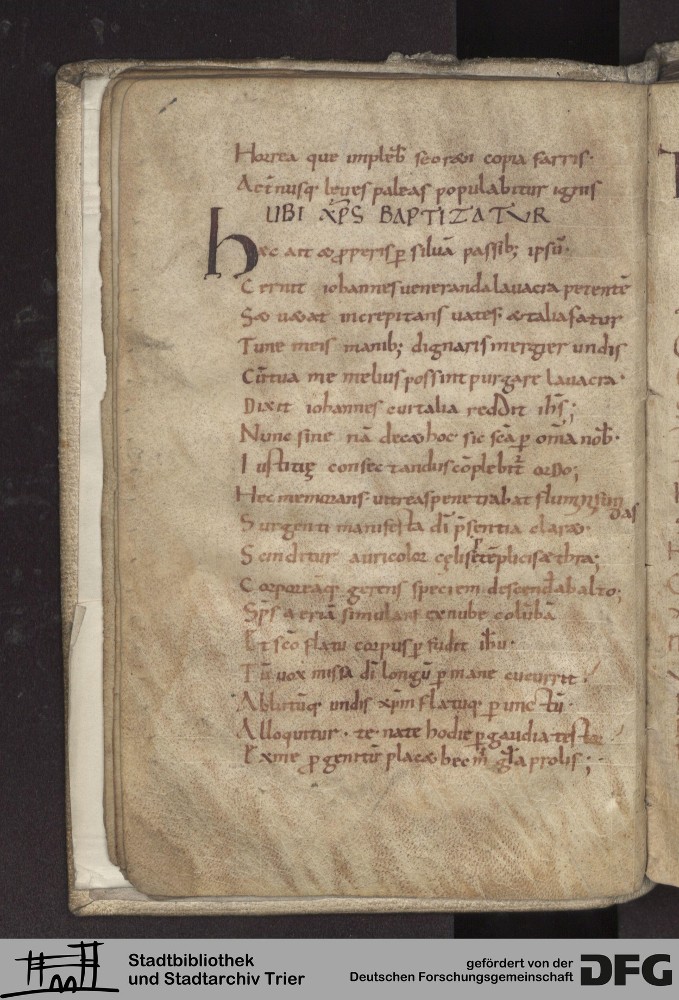 Horrea que implēb secreti copia farris·
Aet̄nusq· leues paleas populabitur ignis
UBI XP̄S BAPTIZATVR
Hæc ait & ꝓperis ꝑ siluā passib; ipsū·
Cernit iohannes ueneranda lauacra petentē
S& uetat increpitans uates· & talia fatur
Tune meis manib; dignaris mergier undis
Cū tua me melius possint purgare lauacra·
Dixit iohannes cui talia reddit ih̄s;
Nunc sine nā dec& hoc sic sc̄a ꝑ om̄a nob̄·
Iustitię consectandus cōplebit̄ ordo;
Hec memorans uitreas penetrabat fluminis undas
Surgenti manifesta dī p̄sentia clar&·
Scinditur auricolor cęli septēplicis æthra;
Corporeāq· gerens speciem descend ab alto;
Sp̄s aeriā simulans ex nube colūbā
Et sc̄o flatu corpus ꝑfudit ih̄u·
Tū uox missa dī longū ꝑ inane cucurrit
Ablutūq· undis xp̄m flatuq· ꝑunctū·
Alloquitur· te nate hodie ꝑ gaudia testor
Ex me ꝓgenitū plac& hec m̄ gl̄a prolis;
Stadtbibliothek
und Stadtarchiv Trier
gefördert von der
Deutschen Forschungsgemeinschaft
DFG